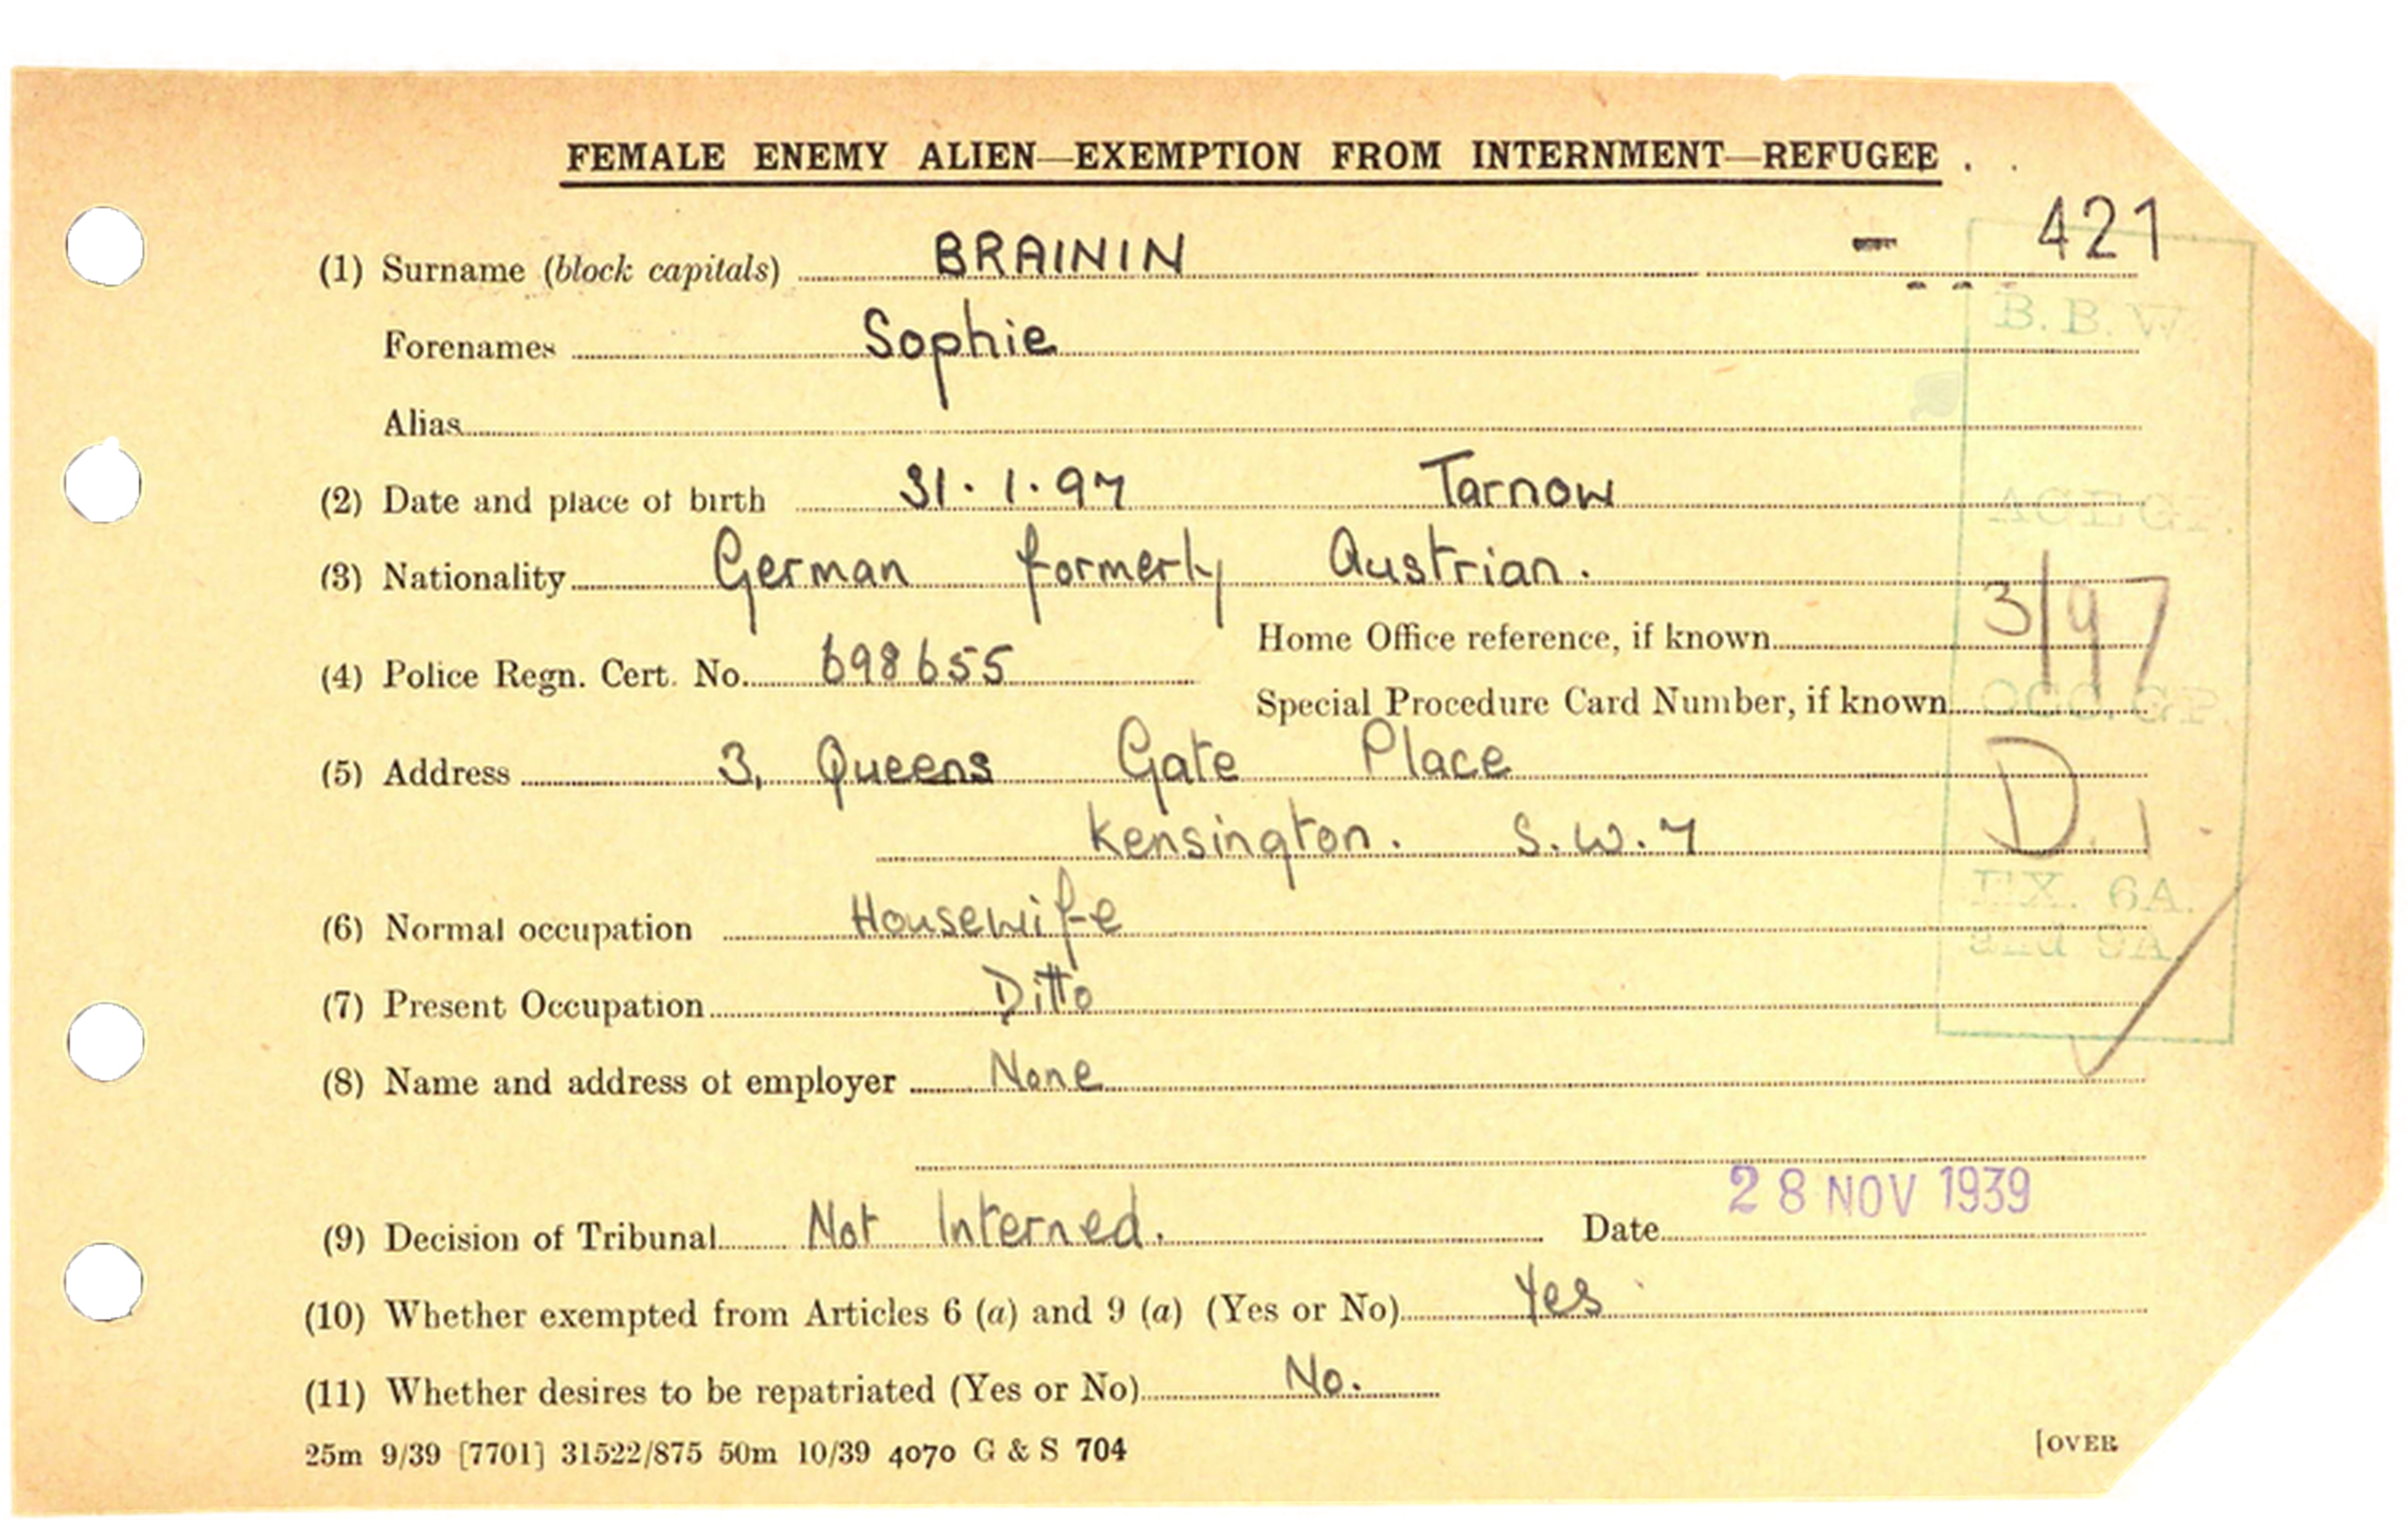 FEMALE ENEMY ALIEN—EXEMPTION FROM INTERNMENT—REFUGEE.
421
(1) Surname (block capitals) BRAININ
B.B.W.
Forenames Sophie
Alias
(2) Date and place of birth 31.1.97 Tarnow
AGE GP.
(3) Nationality German formerly Austrian.
3/97
Home Office reference, if known
(4) Police Regn. Cert. No. 698655
Special Procedure Card Number, if known
OCC. GP.
(5) Address 3, Queens Gate Place
Kensington. S.W.7
D.1
EX. 6A.
and 9A.
(6) Normal occupation Housewife
(7) Present Occupation Ditto
(8) Name and address of employer None
28 NOV 1939
(9) Decision of Tribunal Not Interned. Date
(10) Whether exempted from Articles 6 (a) and 9 (a) (Yes or No) Yes
(11) Whether desires to be repatriated (Yes or No) No.
25m 9/39 [7701] 31522/875 50m 10/39 4070 G & S 704
[OVER